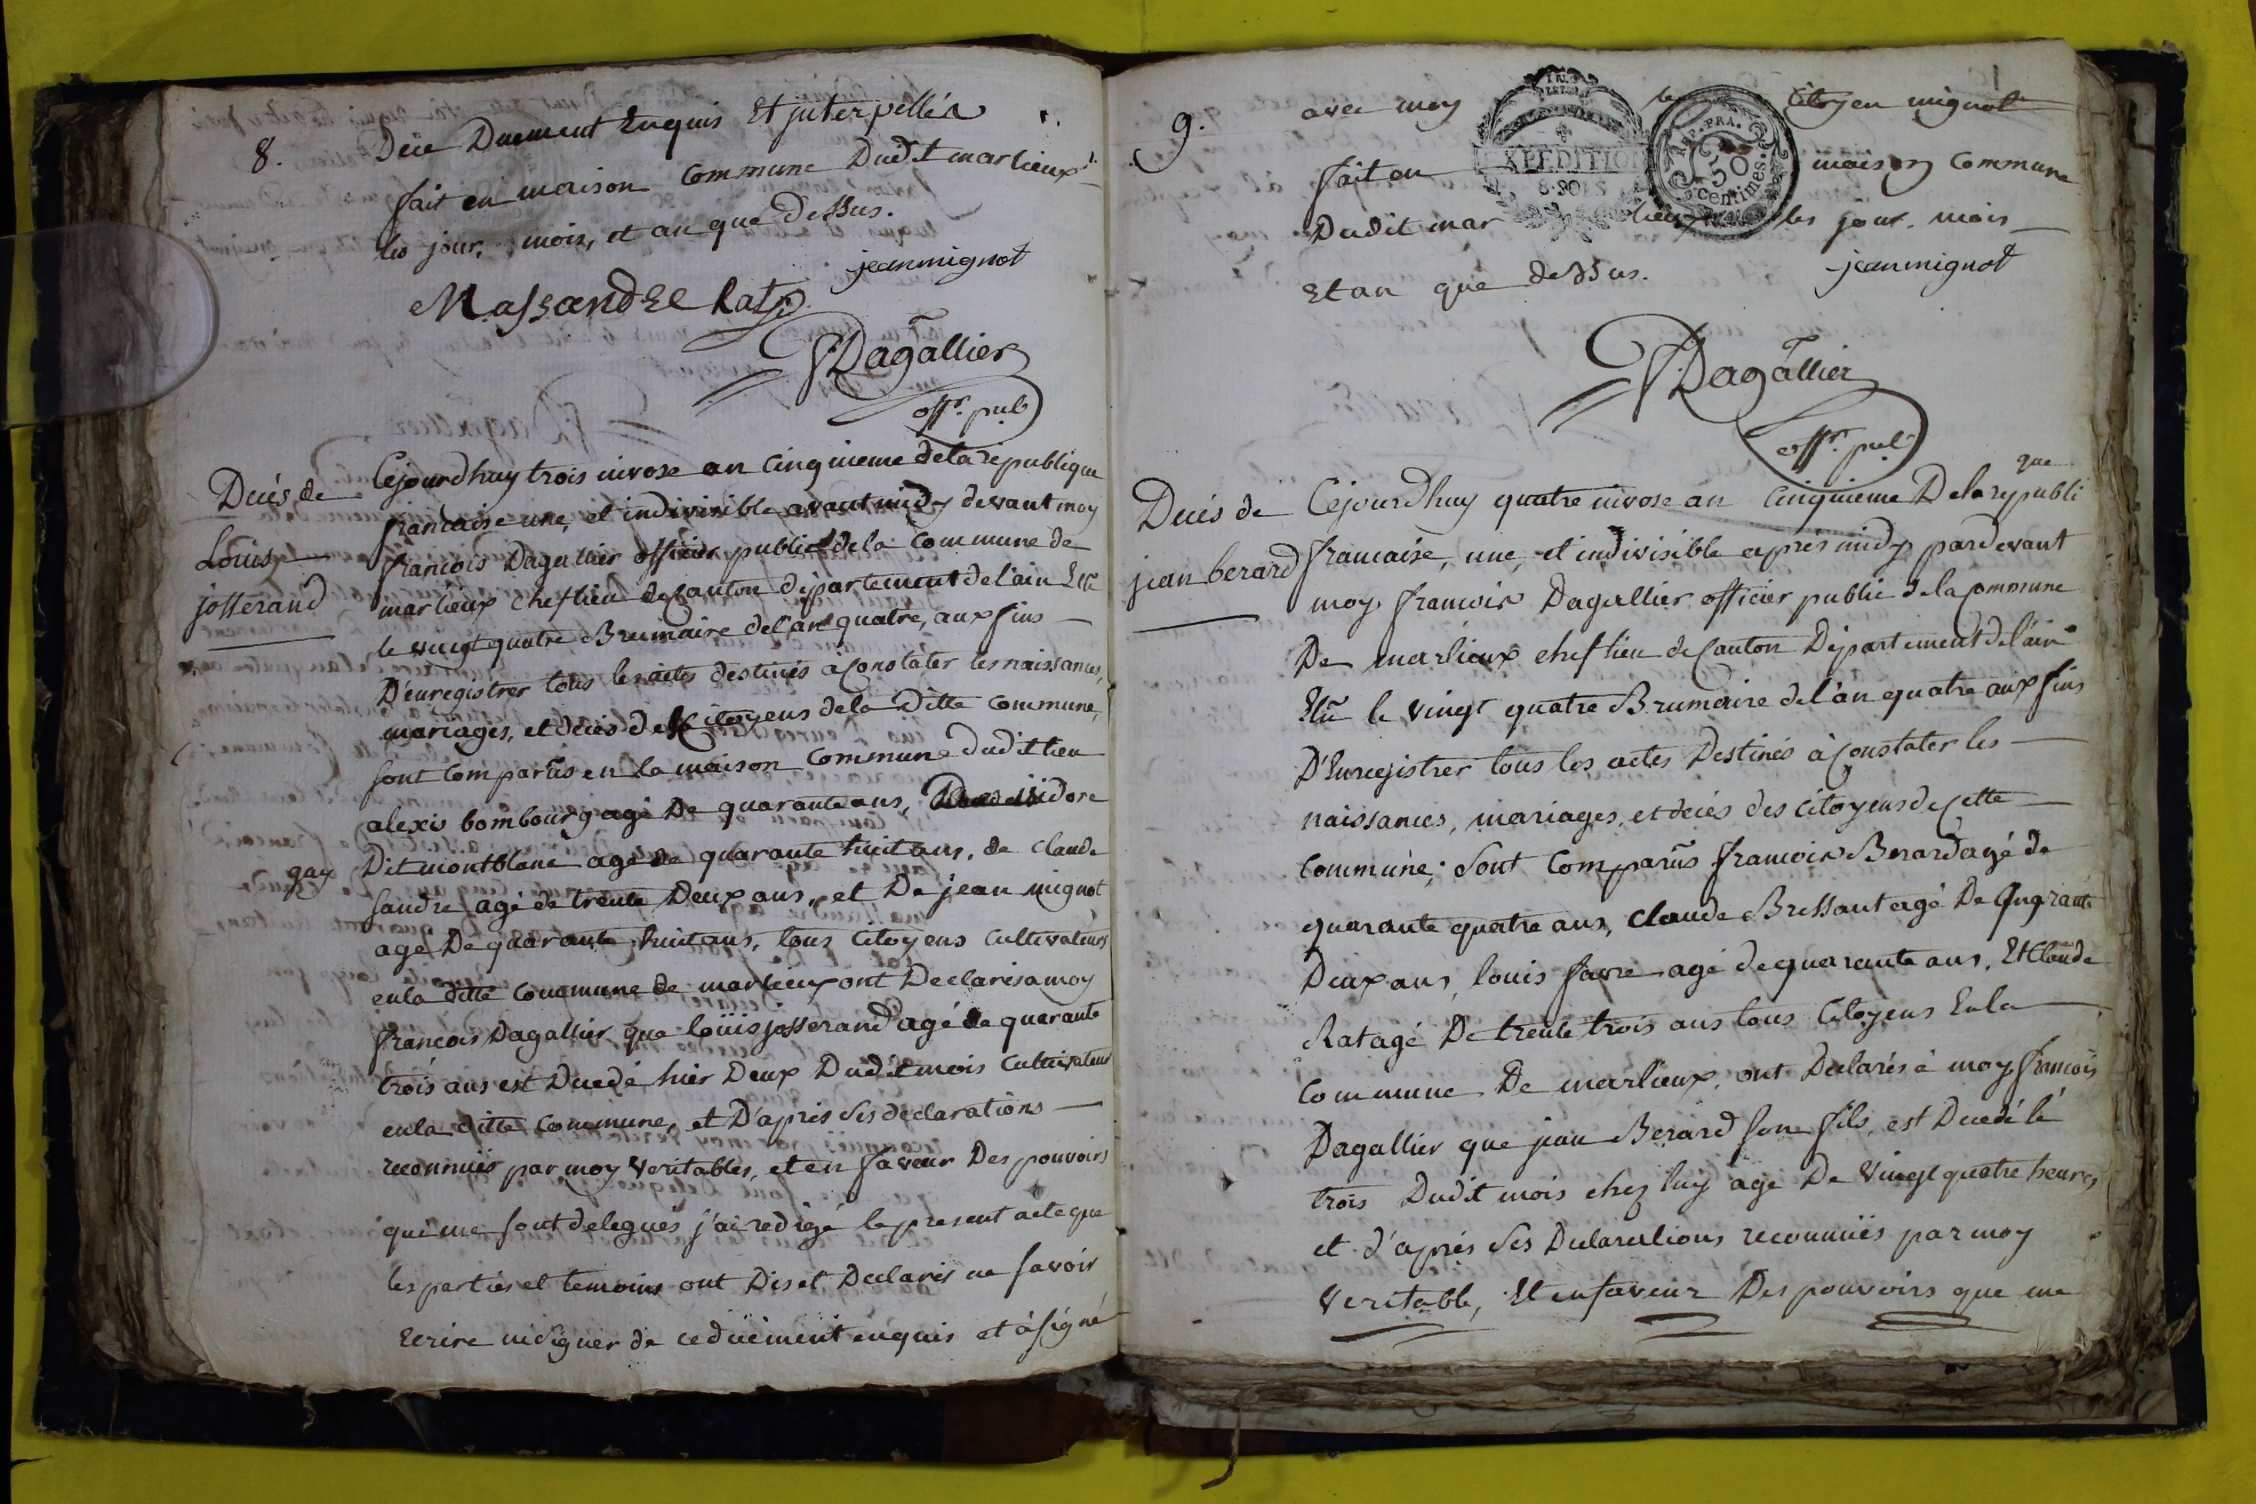 8.
De ce Duement Enquis Et interpellés
fait en maison commune Dudit marlieux
les jour, mois, et an que dessus.
jean mignot
Massandre Rat
F. Dagallier
offr. pub
Décés de
Louis
josserand
Cejourdhuy trois nivose an cinquieme de la republique
francaise une, et indivisible avant midy devant moy
francois Dagallier officier public de la commune de
marlieux chef lieu de canton département de l'ain Elû
le vingt quatre Brumaire de l'an quatre, aux fins
D'enregistrer tous les actes destinés a constater les naissances,
mariages, et décés des citoyens de la ditte commune,
sont comparûs en la maison commune dudit lieu
alexis bombourg agé De quarante ans, isidore
gay Dit montblanc agé de quarante huit ans, de claude
sandre agé de trente Deux ans, et De jean mignot
agé De quarante huit ans, tous citoyens cultivateurs
en la ditte commune de marlieux ont Declarés a moy
francois Dagallier que loüis josserand agé de quarante
trois ans est Decedé hier Deux Dudit mois cultivateur
en la ditte commune, et D'aprés ses declarations
reconnües par moy veritables, et en faveur Des pouvoirs
que me sont delegués j'ai redigé le present acte que
les parties et temoins ont Dis et Declarés ne savoir
Ecrire ni signer de ce duëment enquis et à signé
9.
avec moy le Citoyen mignot
EXPEDITION
8 SOLS
REP. FRA.
50
centimes.
fait en maison commune
Dudit marlieux les jour, mois
Et an que dessus.
jean mignot
F. Dagallier
offr. pub
Décés de
jean berard
Cejourdhuy quatre nivose an cinquieme De la republi
que
francaise, une, et indivisible aprés midy pardevant
moy francois Dagallier officier public de la commune
De marlieux chef lieu de canton Département de l'ain
Elû le vingt quatre Brumaire de l'an quatre aux fins
D'Enregistrer tous les actes Destinés à constater les
naissances, mariages, et décés des citoyens de cette
commune; sont comparûs francois Berard agé de
quarante quatre ans, claude Bressant agé De quarante
Deux ans, louis favre agé de quarante ans, Et Claude
Rat agé De trente trois ans tous Citoyens En la
commune De marlieux, ont Declarés à moy francois
Dagallier que jean Berard sone fils, est Decedé le
trois Dudit mois chez luy agé De vingt quatre heures,
et d'aprés ses Declarations reconnüés par moy
veritable, Et en faveur Des pouvoirs que me